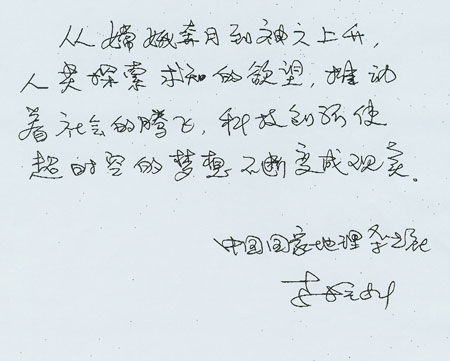 从嫦娥奔月到神六上升，
人类探索求知的欲望，推动
着社会的腾飞，科技创新使
超时空的梦想不断变成现实。
中国国家地理杂志社